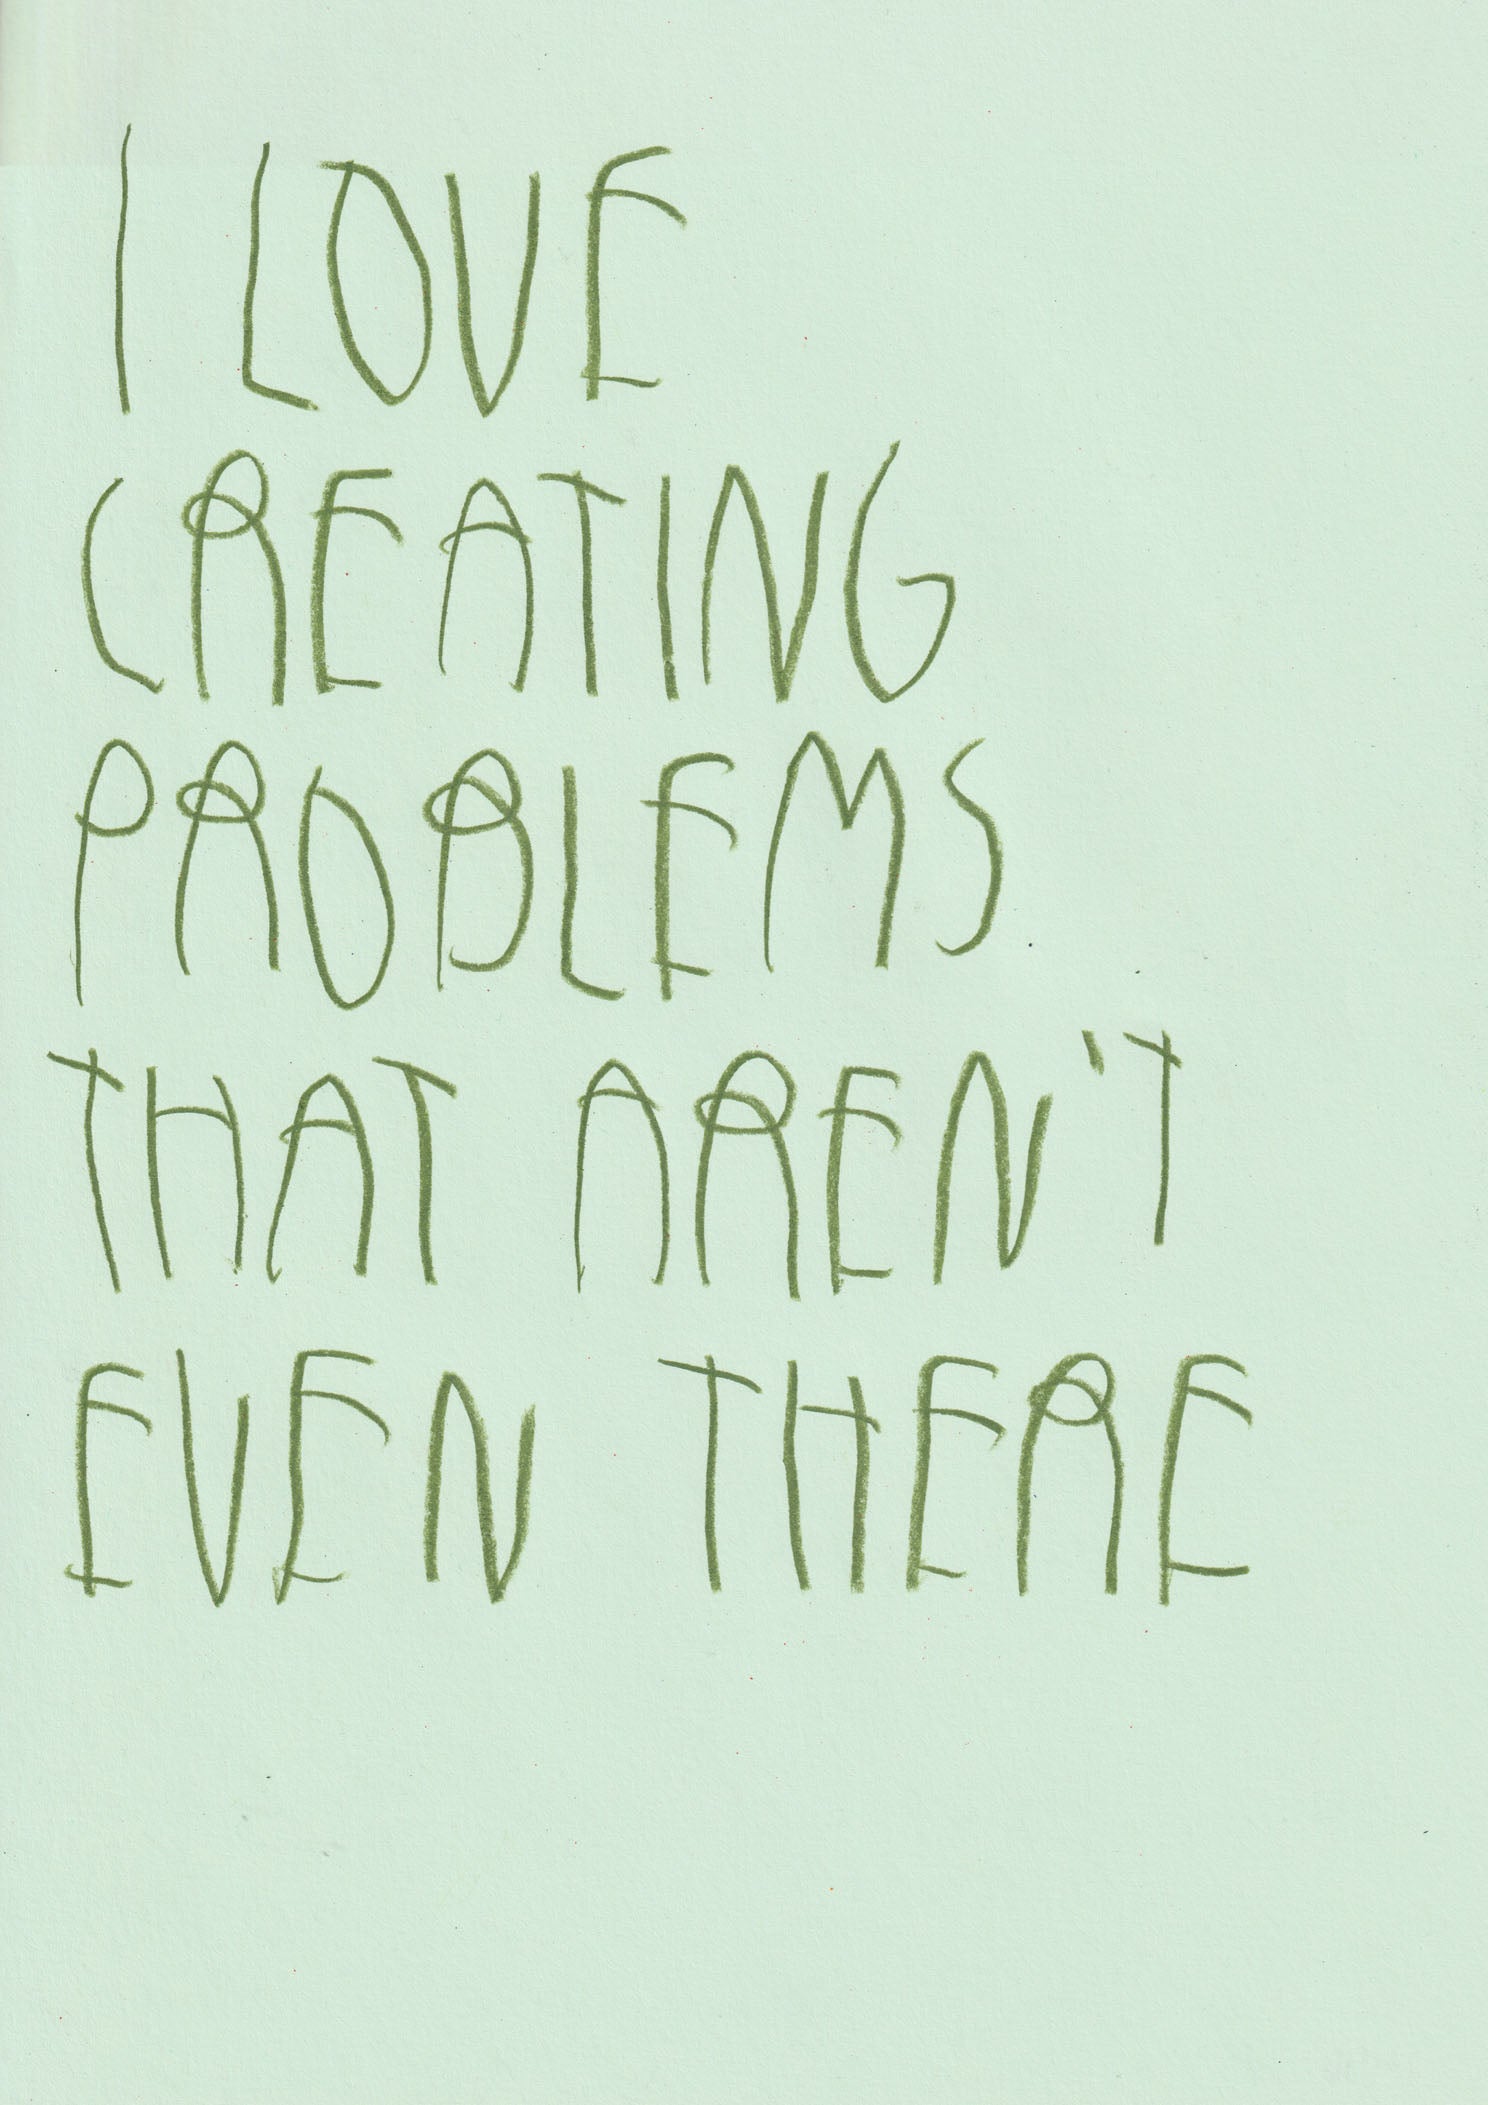 I LOVE
CREATING
PROBLEMS
THAT AREN'T
EVEN THERE